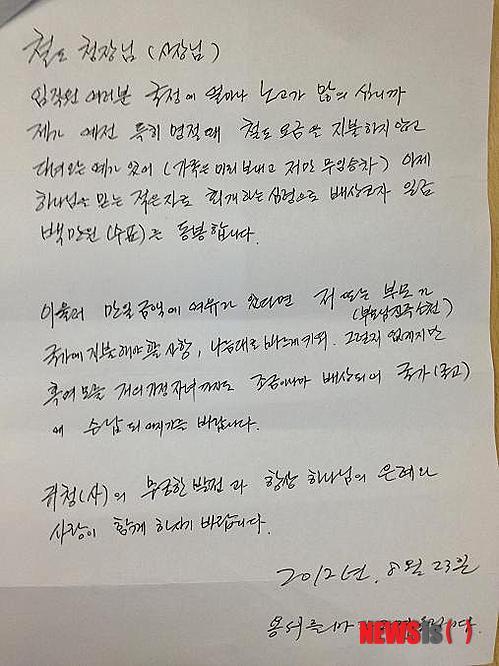 철도 청장님 (사장님)
임직원 여러분 국정에 얼마나 노고가 많으십니까
제가 예전 특히 명절때 철도 요금을 지불하지 않고
다녀온 예가 있어 (가족은 미리 보내고 저만 무임승차) 이제
하나님을 믿는 적은자로 회개하는 심령으로 배상코자 일금
백만원 (수표)을 동봉합니다.
아울러 만일 금액에 여유가 있다면 저 또는 부모가
(부모님 소천)
국가에 지불해야 할 사항, 나름대로 바르게 키워. 그렇지 없겠지만
혹여 모를 저의 가정 자녀까지도 조금이나마 배상되어 국가(국고)
에 수납 되어지기를 바랍니다.
귀청(사)의 무궁한 발전과 항상 하나님의 은혜와
사랑이 함께 하시기 바랍니다.
2012년. 8월 23일
용서를
NEWSIS( )